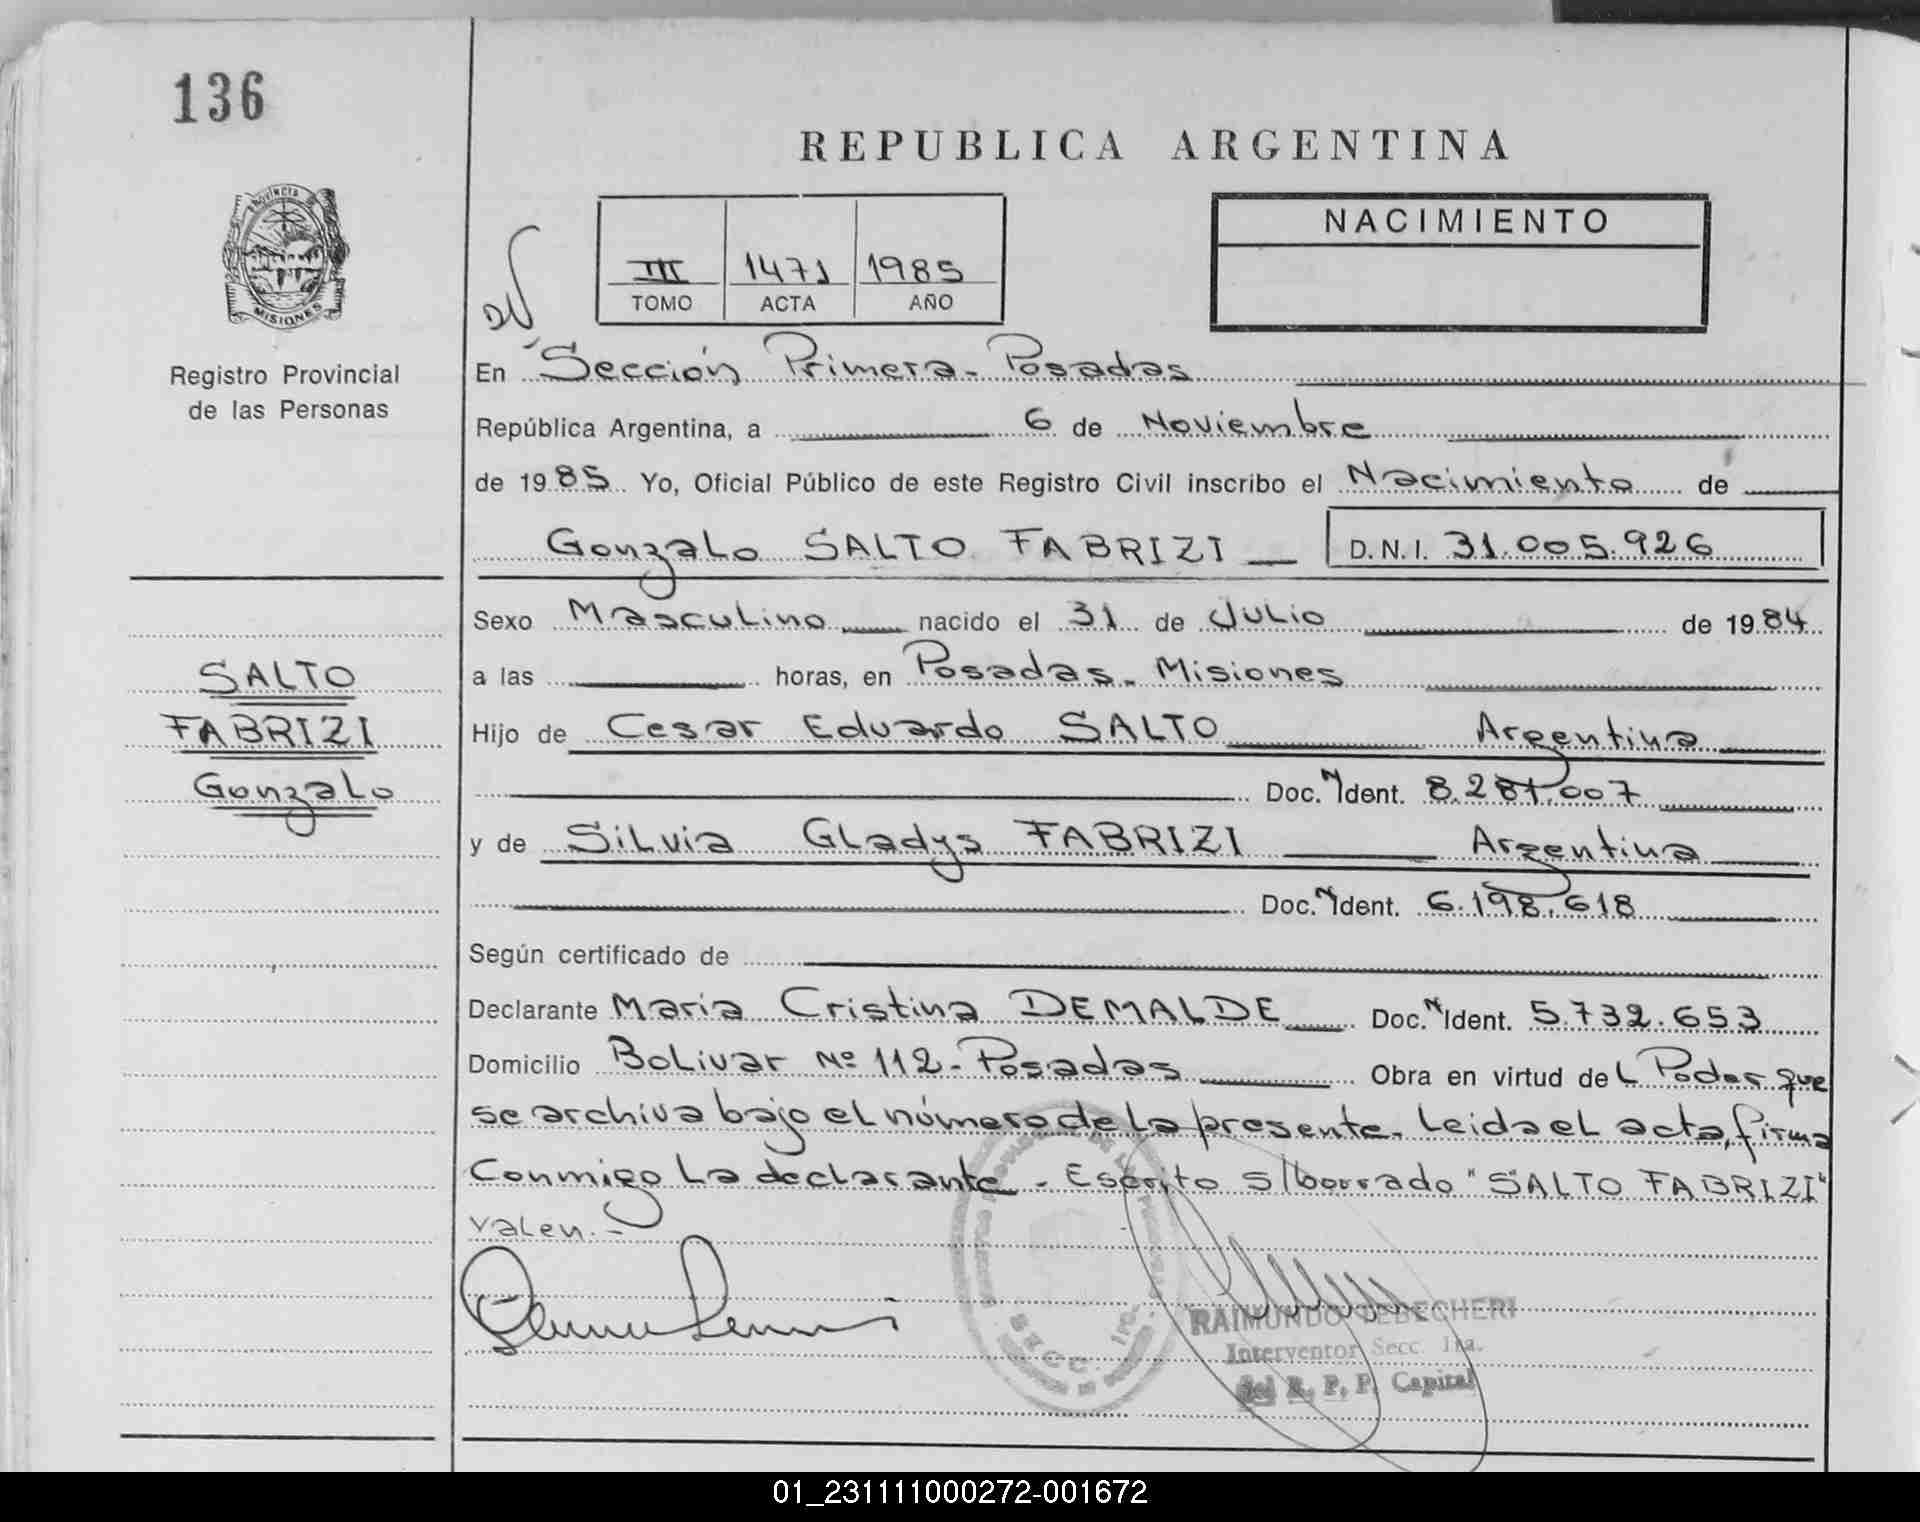 136
REPUBLICA ARGENTINA
Provincia
MISIONES
Registro Provincial
de las Personas
NACIMIENTO
III 1471 1985
TOMO ACTA AÑO
En Sección Primera- Posadas
República Argentina, a 6 de Noviembre
de 1985 Yo, Oficial Público de este Registro Civil inscribo el Nacimiento de
Gonzalo SALTO FABRIZI D.N.I. 31.005.926
Sexo Masculino nacido el 31 de Julio de 1984
a las horas, en Posadas- Misiones
Hijo de Cesar Eduardo SALTO Argentina
Doc. N Ident. 8.281.007
y de Silvia Gladys FABRIZI Argentina
Doc. N Ident. 6.198.618
SALTO
FABRIZI
Gonzalo
Según certificado de
Declarante Maria Cristina DEMALDE Doc. N Ident. 5.732.653
Domicilio Bolivar Nº 112- Posadas Obra en virtud del Poder que
se archiva bajo el número de la presente- Leida el acta, firma
Conmigo la declarante - Escrito s/borrado "SALTO FABRIZI"
valen.-
SECC. 1ra.
RAIMUNDO
Interventor Secc. 1ra.
del R. P. P. Capital
01_231111000272-001672